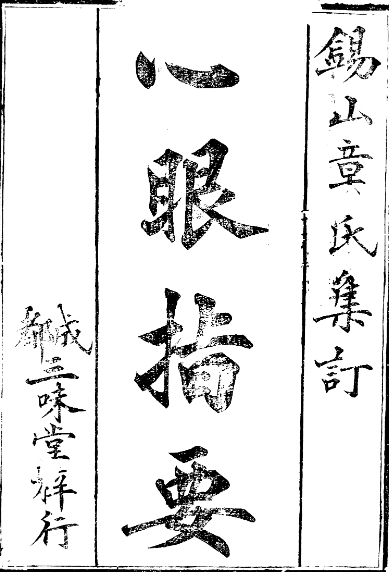 錫山章氏集訂
心眼指要
成都三味堂梓行